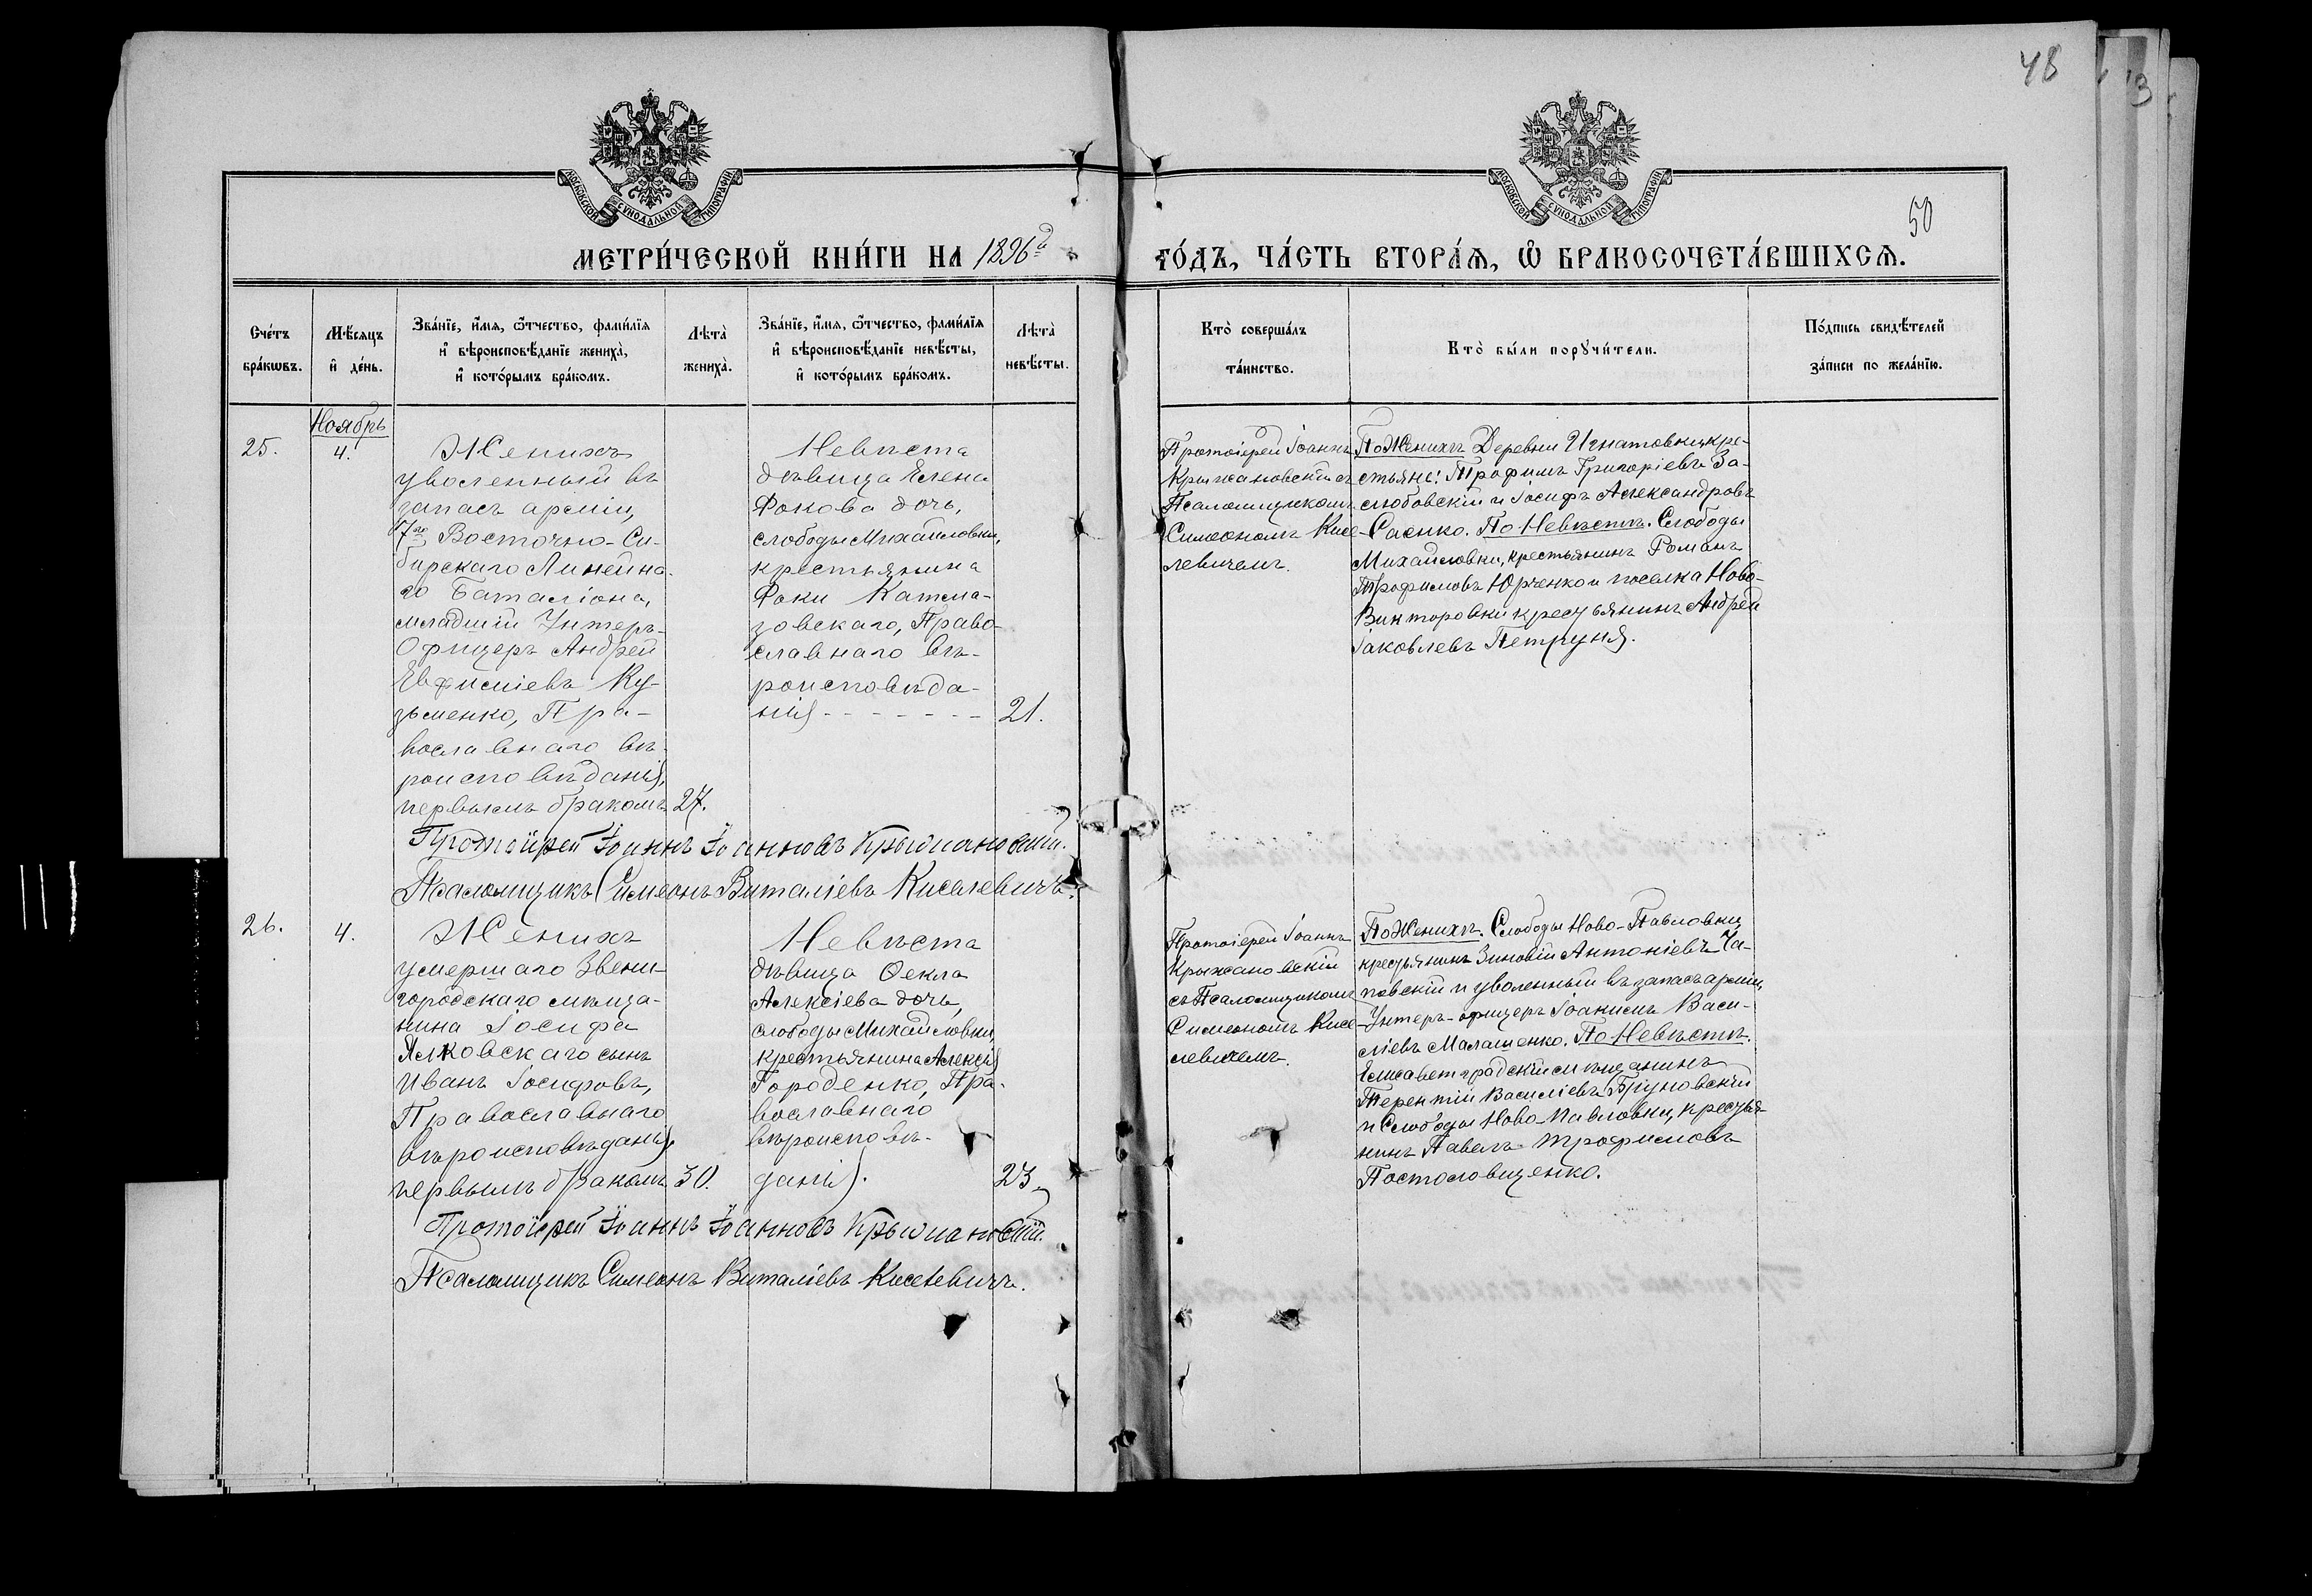 48
3
МОСКОВСКОЙ СУНОДАЛЬНОЙ ТИПОГРАФІИ
МОСКОВСКОЙ СУНОДАЛЬНОЙ ТИПОГРАФІИ
50
МЕТРИ́ЧЕСКОЙ КНИ́ГИ НА 1896й
ГО́ДЪ, ЧА́СТЬ ВТОРА́Ѧ, Ѡ БРАКОСОЧЕТА́ВШИХСѦ.
Сче́тъ
бра́кѡвъ.
Мѣ́сяцъ
и҆ де́нь.
Зва́нїе, и҆́мѧ, ѻ҆́тчество, фамн́лїѧ
и҆ вѣроисповѣ́данїе жениха̀,
и҆ кото́рымъ бра́комъ.
Лѣта̀
жениха̀.
Зва́нїе, и҆́мѧ, ѻ҆́тчество, фами́лїѧ
и҆ вѣроисповѣ́данїе невѣ́сты,
и҆ кото́рымъ бра́комъ.
Лѣта̀
невѣ́сты.
Кто̀ соверша́лъ
та́инство.
Кто̀ бы́ли порꙋчи́тели.
По́дпись свидѣ́телей
за́писи по жела́нїю.
25.
Ноябрь
4.
Женихъ
уволенный въ
запасъ арміи,
7го Восточно-Си-
бирскаго Линейна-
го Баталіона,
младшій Унтеръ-
Офицеръ Андрей
Евфиміевъ Ку-
зьменко, Пра-
вославнаго вѣ-
роисповѣданія,
первымъ бракомъ
27.
Невѣста
дѣвица Елена
Фокова дочь,
слободы Михайловки,
крестьянина
Фоки Катема-
зовскаго, Право-
славнаго вѣ-
роисповѣда-
нія
21.
Протоіерей Іоаннъ
Крыжановскій съ
Псаломщикомъ
Симеономъ Кисе-
левичемъ.
По Женихѣ Деревни Игнатовки, кре-
стьяне: Трофимъ Григоріевъ За-
слюбовскій и Іосифъ Александровъ
Саенко. По Невѣстѣ. Слободы
Михайловки, крестьянинъ Романъ
Трофимовъ Юрченко и поселка Ново-
Викторовки крестьянинъ Андрей
Іаковлевъ Петруня.
Протоіерей Іоаннъ Іоанновъ Крыжановскій.
Псаломщикъ Симеонъ Виталіевъ Киселевичъ.
26.
4.
Женихъ
умершаго Звени-
городскаго мѣща-
нина Іосифа
Ялковскаго сынъ
Иванъ Іосифовъ,
Православнаго
вѣроисповѣданія,
первымъ бракомъ
30.
Невѣста
дѣвица Ѳекла
Алексіева дочь,
слободы Михайловки,
крестьянина Алексія
Городенко, Пра-
вославнаго
вѣроисповѣ-
данія.
23
Протоіерей Іоаннъ
Крыжановскій
съ Псаломщикомъ
Симеономъ Кисе-
левичемъ.
По Женихѣ. Слободы Ново-Павловки,
крестьянинъ Зиновій Антоніевъ Ча-
повскій и уволенный въ запасъ арміи,
Унтеръ-офицеръ Іоакимъ Васи-
ліевъ Малашенко. По Невѣстѣ.
Елисаветградскій мѣщанинъ
Терентій Василіевъ Бруновскій
и Слободы Ново-Павловки, крестья-
нинъ Павелъ Трофимовъ
Постоловщенко.
Протоіерей Іоаннъ Іоанновъ Крыжановскій.
Псаломщикъ Симеонъ Виталіевъ Киселевичъ.